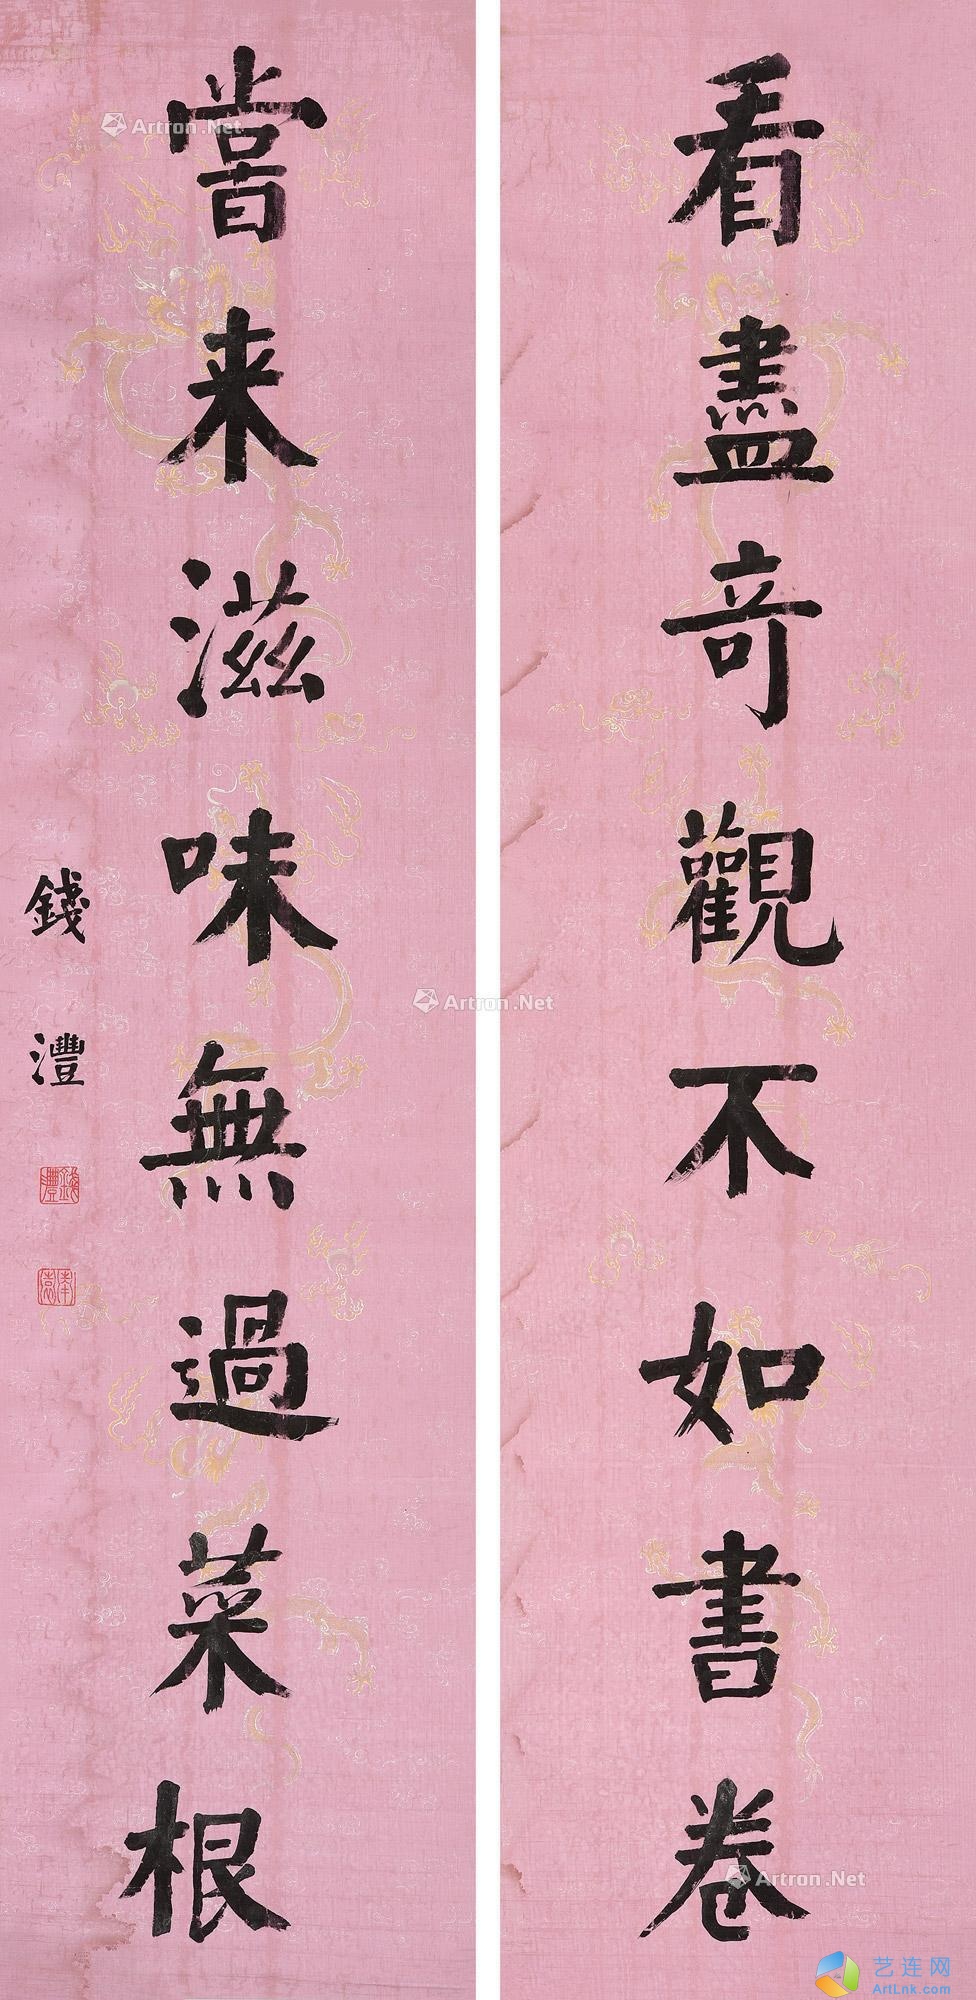 看盡竒觀不如書卷
嘗来滋味無過菜根
錢灃
錢灃
南園
Artron.Net
Artron.Net
Artron.Net
艺连网
ArtLnk.com